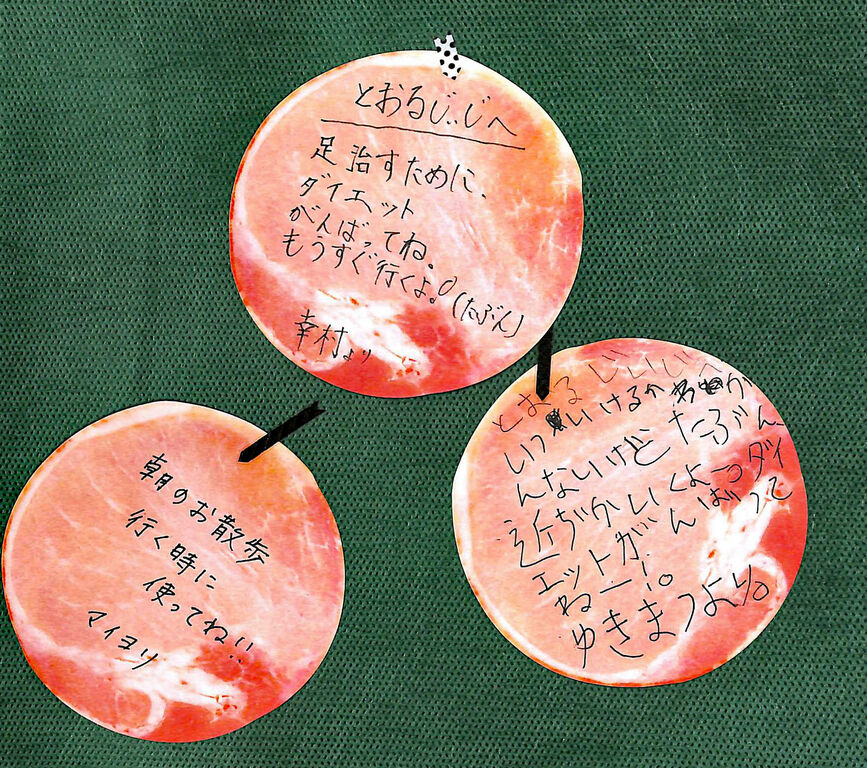 とおるじぃじへ
足治すために、
ダイエット
がんばってね。
もうすぐ行くよ。(たぶん)
幸村より
朝のお散歩
行く時に
使ってね!!
マイヨリ
とおるじいじへ
いついけるか わか
んないけど たぶん
近ぢかいくよーっダイ
エットがんばって
ねー!。
ゆきまつより。